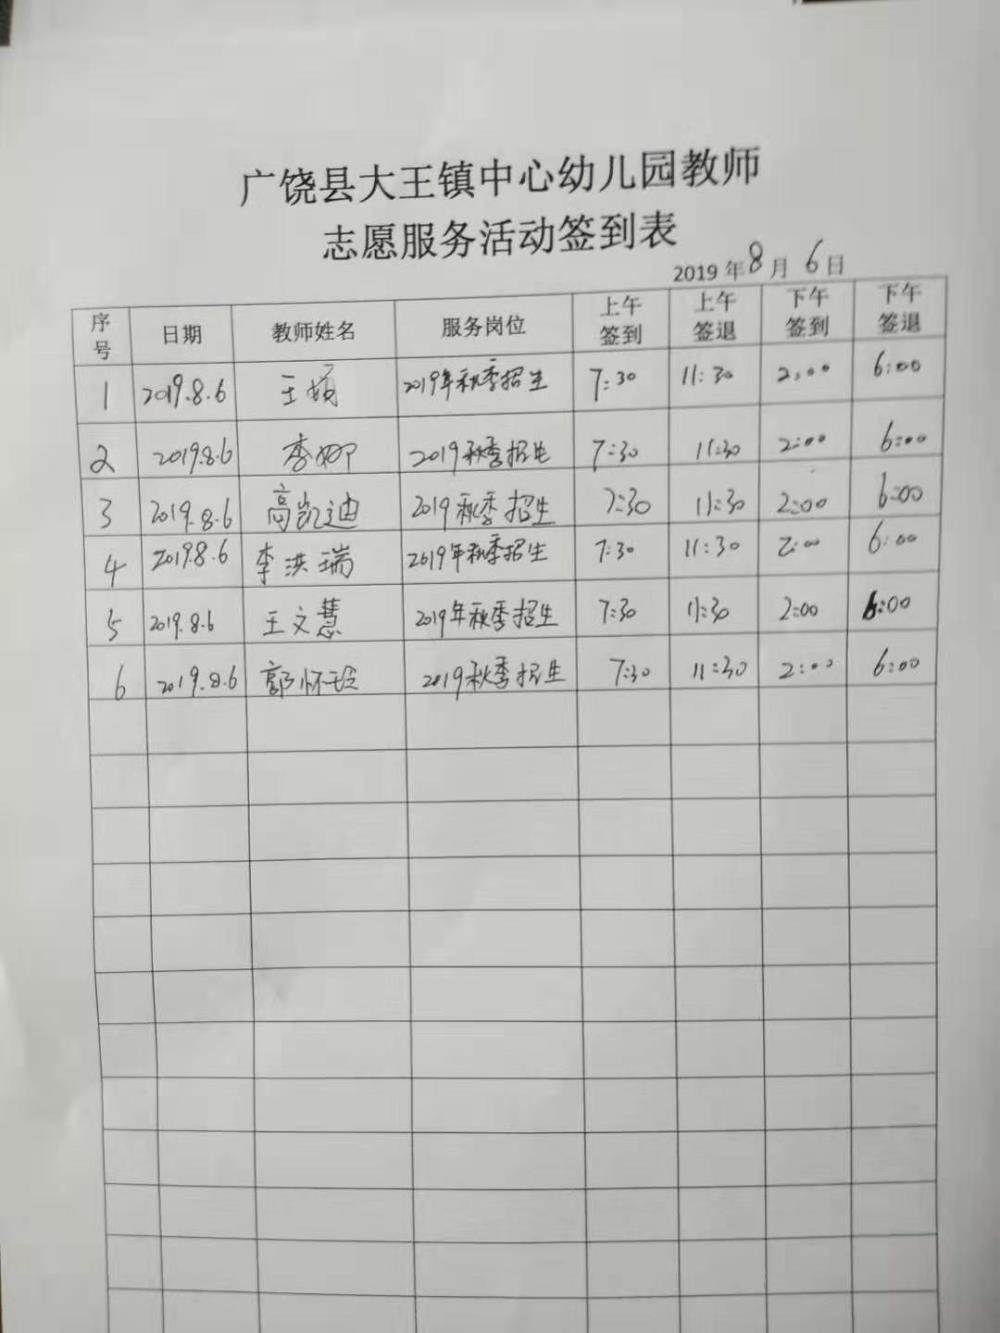 广饶县大王镇中心幼儿园教师
志愿服务活动签到表
2019年8月6日
序号 日期 教师姓名 服务岗位 上午签到 上午签退 下午签到 下午签退
1 2019.8.6 王 2019年秋季招生 7:30 11:30 2:00 6:00
2 2019.8.6 李娜 2019秋季招生 7:30 11:30 2:00 6:00
3 2019.8.6 高凯迪 2019秋季招生 7:30 11:30 2:00 6:00
4 2019.8.6 李洪瑞 2019年秋季招生 7:30 11:30 2:00 6:00
5 2019.8.6 王文慧 2019年秋季招生 7:30 11:30 2:00 6:00
6 2019.8.6 郭怀玲 2019秋季招生 7:30 11:30 2:00 6:00